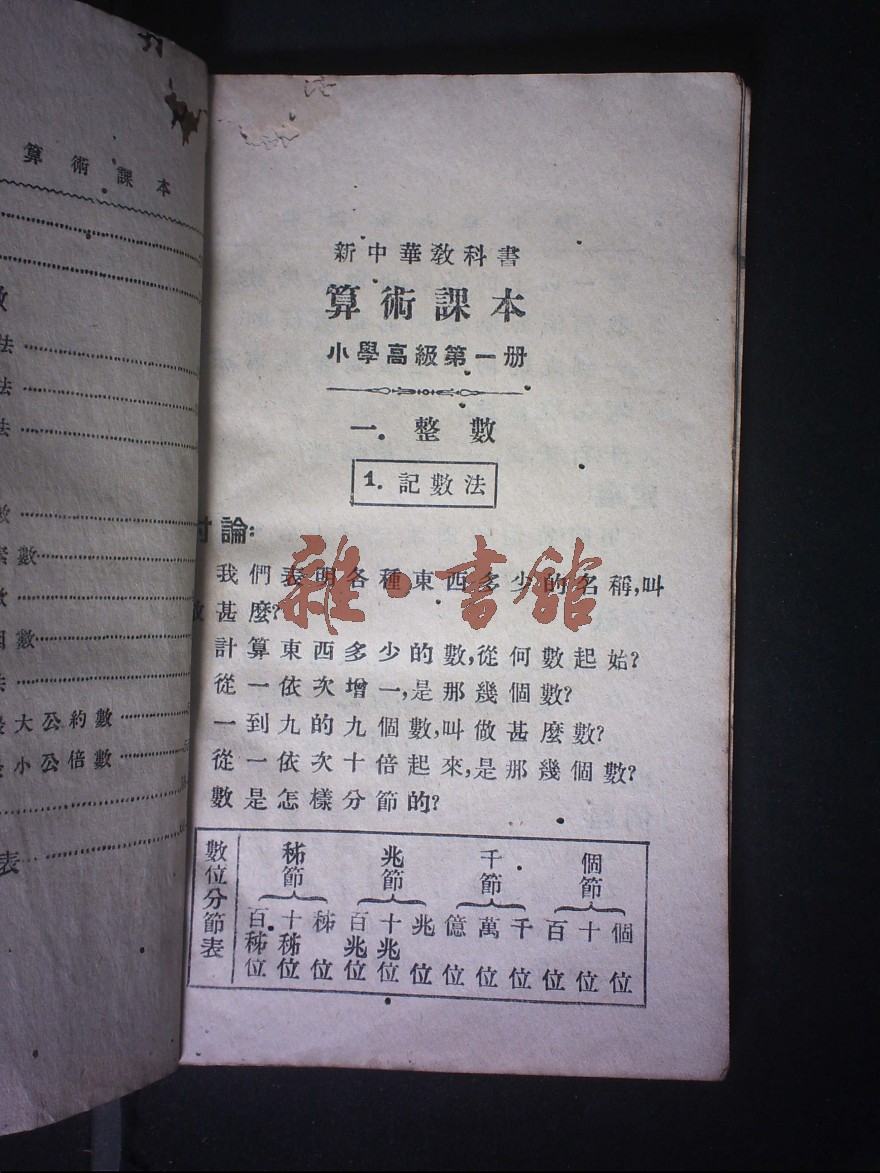 算術課本
數
法
法
法
數
素數
數
因數
法
最大公約數
最小公倍數
表
新中華教科書
算術課本
小學高級第一册
一．整數
1. 記數法
討論：
我們表明各種東西多少的名稱，叫
做甚麼？
計算東西多少的數，從何數起始？
從一依次增一，是那幾個數？
一到九的九個數，叫做甚麼數？
從一依次十倍起來，是那幾個數？
數是怎樣分節的？
數位分節表
秭節 兆節 千節 個節
百秭位 十秭位 秭位 百兆位 十兆位 兆位 億位 萬位 千位 百位 十位 個位
雜·書館